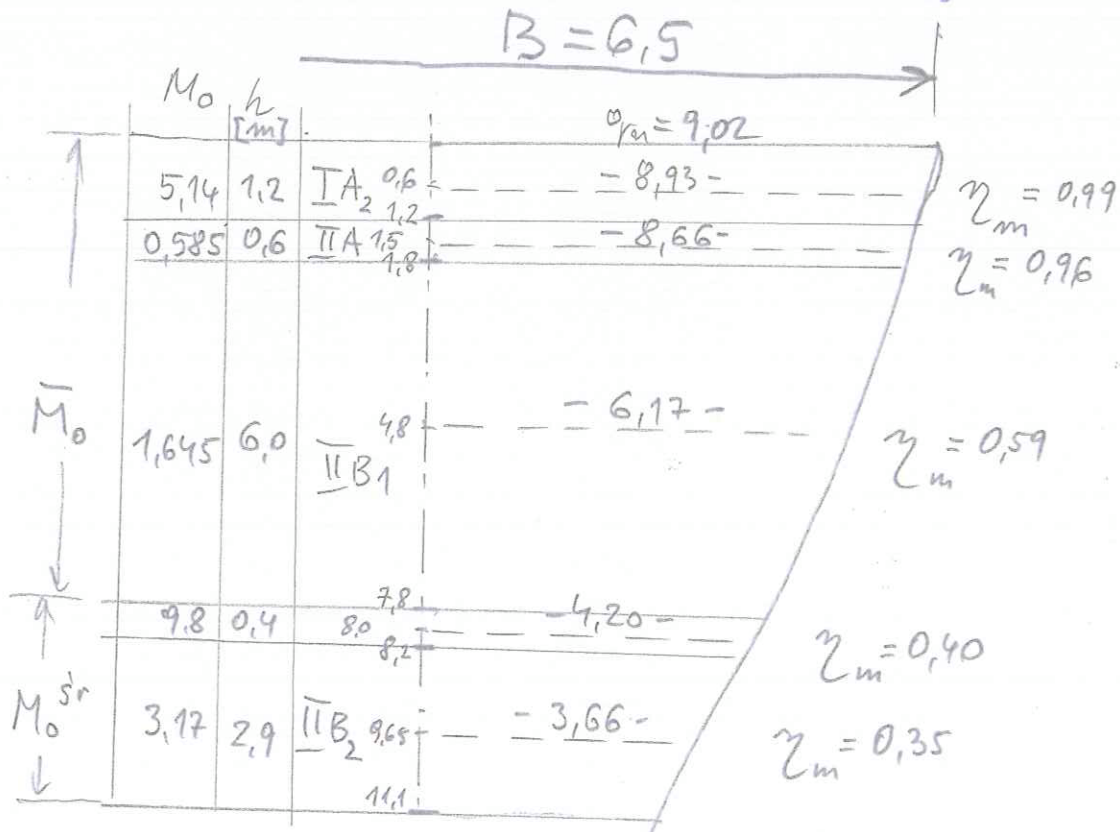 B = 6,5
M₀ h
[m]
qₘ = 9,02
5,14 1,2 IA₂ 0,6 - 8,93 - ηₘ = 0,99
1,2
0,585 0,6 IIA 1,5 - 8,66 - ηₘ = 0,96
1,8
M̄₀ 1,645 6,0 IIB1 4,8 - 6,17 - ηₘ = 0,59
7,8
9,8 0,4 8,0 - 4,20 - ηₘ = 0,40
8,2
M₀ śr 3,17 2,9 IIB₂ 9,65 - 3,66 - ηₘ = 0,35
11,1